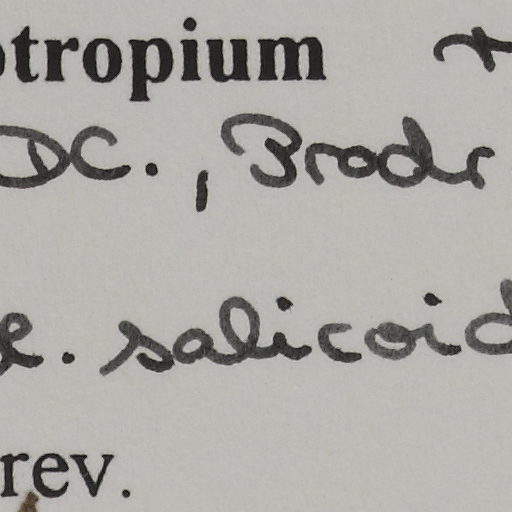 otropium
DC., Prodr
e. salicoid
rev.